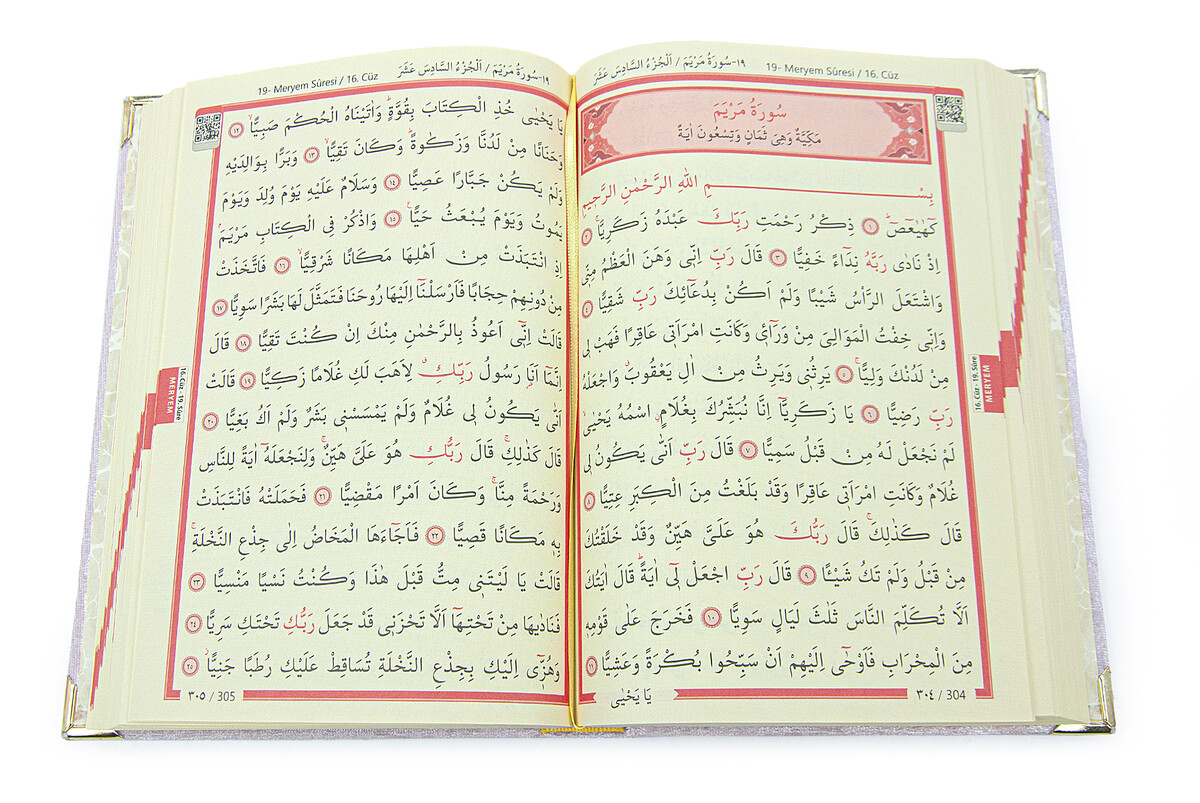 ١٩-سُورَةُ مَرْيَمَ / اَلْجُزْءُ السَّادِسَ عَشَرَ
19- Meryem Sûresi / 16. Cüz
سُورَةُ مَرْيَمَ
مَكِّيَّةٌ وَهِيَ ثَمَانٍ وَتِسْعُونَ اٰيَةً
بِسْــــــمِ اللّٰهِ الرَّحْمٰنِ الرَّحٖيمِ
كٓهٰيٰعٓصٓ ﴿١﴾ ذِكْرُ رَحْمَتِ رَبِّكَ عَبْدَهُ زَكَرِيَّاۚ ﴿٢﴾
اِذْ نَادٰى رَبَّهُ نِدَٓاءً خَفِيًّا ﴿٣﴾ قَالَ رَبِّ اِنّٖي وَهَنَ الْعَظْمُ مِنّٖي
وَاشْتَعَلَ الرَّأْسُ شَيْبًا وَلَمْ اَكُنْ بِدُعَٓائِكَ رَبِّ شَقِيًّا ﴿٤﴾
وَاِنّٖي خِفْتُ الْمَوَالِيَ مِنْ وَرَٓائٖي وَكَانَتِ امْرَاَتٖي عَاقِرًا فَهَبْ لٖي
مِنْ لَدُنْكَ وَلِيًّاۙ ﴿٥﴾ يَرِثُنٖي وَيَرِثُ مِنْ اٰلِ يَعْقُوبَ وَاجْعَلْهُ
رَبِّ رَضِيًّا ﴿٦﴾ يَا زَكَرِيَّٓا اِنَّا نُبَشِّرُكَ بِغُلَامٍ اسْمُهُ يَحْيٰى
لَمْ نَجْعَلْ لَهُ مِنْ قَبْلُ سَمِيًّا ﴿٧﴾ قَالَ رَبِّ اَنّٰى يَكُونُ لٖي
غُلَامٌ وَكَانَتِ امْرَاَتٖي عَاقِرًا وَقَدْ بَلَغْتُ مِنَ الْكِبَرِ عِتِيًّا ﴿٨﴾
قَالَ كَذٰلِكَۚ قَالَ رَبُّكَ هُوَ عَلَيَّ هَيِّنٌ وَقَدْ خَلَقْتُكَ
مِنْ قَبْلُ وَلَمْ تَكُ شَيْـًٔا ﴿٩﴾ قَالَ رَبِّ اجْعَلْ لٖٓي اٰيَةًۜ قَالَ اٰيَتُكَ
اَلَّا تُكَلِّمَ النَّاسَ ثَلٰثَ لَيَالٍ سَوِيًّا ﴿١٠﴾ فَخَرَجَ عَلٰى قَوْمِهٖ
مِنَ الْمِحْرَابِ فَاَوْحٰٓى اِلَيْهِمْ اَنْ سَبِّحُوا بُكْرَةً وَعَشِيًّا ﴿١١﴾
يَا يَحْيٰى
٣٠٤ / 304
16. Cüz - 19. Sûre
MERYEM
١٩-سُورَةُ مَرْيَمَ / اَلْجُزْءُ السَّادِسَ عَشَرَ
19- Meryem Sûresi / 16. Cüz
يَا يَحْيٰى خُذِ الْكِتَابَ بِقُوَّةٍۜ وَاٰتَيْنَاهُ الْحُكْمَ صَبِيًّاۙ ﴿١٢﴾
وَحَنَانًا مِنْ لَدُنَّا وَزَكٰوةًۜ وَكَانَ تَقِيًّاۙ ﴿١٣﴾ وَبَرًّا بِوَالِدَيْهِ
وَلَمْ يَكُنْ جَبَّارًا عَصِيًّا ﴿١٤﴾ وَسَلَامٌ عَلَيْهِ يَوْمَ وُلِدَ وَيَوْمَ
يَمُوتُ وَيَوْمَ يُبْعَثُ حَيًّاۚ ﴿١٥﴾ وَاذْكُرْ فِي الْكِتَابِ مَرْيَمَۢ
اِذِ انْتَبَذَتْ مِنْ اَهْلِهَا مَكَانًا شَرْقِيًّاۙ ﴿١٦﴾ فَاتَّخَذَتْ
مِنْ دُونِهِمْ حِجَابًا فَاَرْسَلْنَٓا اِلَيْهَا رُوحَنَا فَتَمَثَّلَ لَهَا بَشَرًا سَوِيًّا ﴿١٧﴾
قَالَتْ اِنّٖٓي اَعُوذُ بِالرَّحْمٰنِ مِنْكَ اِنْ كُنْتَ تَقِيًّا ﴿١٨﴾ قَالَ
اِنَّمَٓا اَنَا۬ رَسُولُ رَبِّكِۗ لِاَهَبَ لَكِ غُلَامًا زَكِيًّا ﴿١٩﴾ قَالَتْ
اَنّٰى يَكُونُ لٖي غُلَامٌ وَلَمْ يَمْسَسْنٖي بَشَرٌ وَلَمْ اَكُ بَغِيًّا ﴿٢٠﴾
قَالَ كَذٰلِكِۚ قَالَ رَبُّكِ هُوَ عَلَيَّ هَيِّنٌۚ وَلِنَجْعَلَهُٓ اٰيَةً لِلنَّاسِ
وَرَحْمَةً مِنَّاۚ وَكَانَ اَمْرًا مَقْضِيًّا ﴿٢١﴾ فَحَمَلَتْهُ فَانْتَبَذَتْ
بِهٖ مَكَانًا قَصِيًّا ﴿٢٢﴾ فَاَجَٓاءَهَا الْمَخَاضُ اِلٰى جِذْعِ النَّخْلَةِۚ
قَالَتْ يَا لَيْتَنٖي مِتُّ قَبْلَ هٰذَا وَكُنْتُ نَسْيًا مَنْسِيًّا ﴿٢٣﴾
فَنَادٰيهَا مِنْ تَحْتِهَٓا اَلَّا تَحْزَنٖي قَدْ جَعَلَ رَبُّكِ تَحْتَكِ سَرِيًّا ﴿٢٤﴾
وَهُزّٖٓي اِلَيْكِ بِجِذْعِ النَّخْلَةِ تُسَاقِطْ عَلَيْكِ رُطَبًا جَنِيًّاۘ ﴿٢٥﴾
٣٠٥ / 305
16. Cüz - 19. Sûre
MERYEM